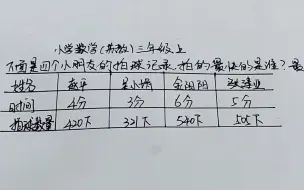 小学数学(苏教)三年级上
下面是四个小朋友的拍球记录.拍的最快的是谁?最
姓名 赵平 吴小娟 金阳阳 张建业
时间 4分 3分 6分 5分
拍球数量 420下 321下 540下 505下